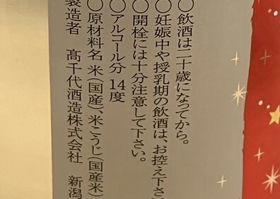 〇飲酒は二十歳になってから。
〇妊娠中や授乳期の飲酒は、お控え下さ
〇開栓には十分注意して下さい。
〇アルコール分 14度
〇原材料名 米(国産)、米こうじ(国産米)
製造者 髙千代酒造株式会社 新潟